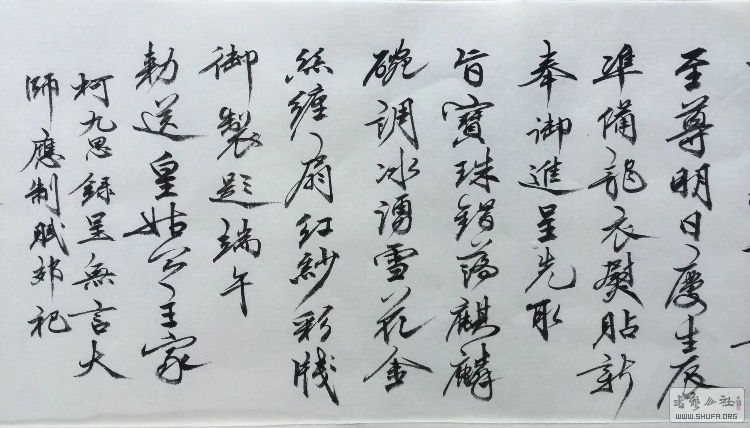 至尊明日慶生辰
準備龍衣熨貼新
奉御進呈先取
旨寶珠錯落麒麟
碗調冰湧雪花金
絲纏扇紅紗彩牋
御製題端午
勅送皇姑公主家
柯九思錄呈無言大
師應制賦郊祀
書藝公社
WWW.SHUFA.ORG